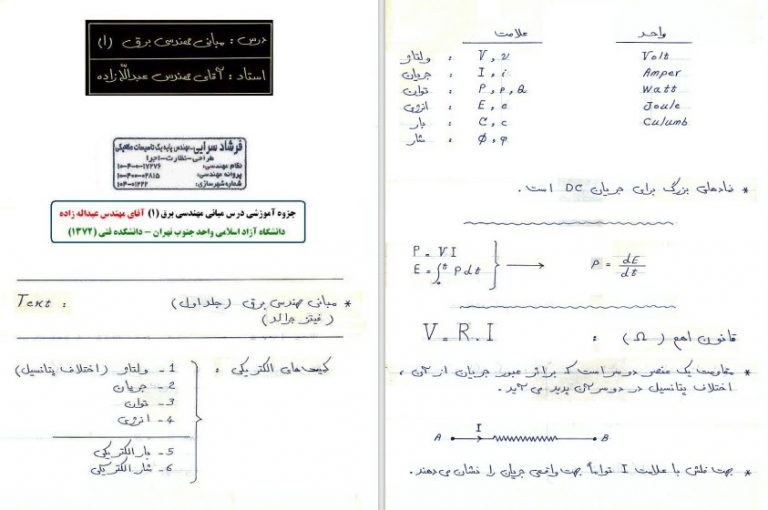 درس : مبانی مهندسی برق (۱)
استاد : آقای مهندس عبداللّه زاده
فرشاد سرایی-مهندس پایه یک تاسیسات مکانیکی
طراحی-نظارت-اجرا
نظام مهندسی: ۱۰-۴۰۰-۰۱۷۲۷۶
پروانه مهندسی: ۱۰-۴۰۰-۰۲۸۱۵
شماره شهرسازی: ۱۰۴-۰۱۲۲۲
جزوه آموزشی درس مبانی مهندسی برق (۱) آقای مهندس عبداله زاده
دانشگاه آزاد اسلامی واحد جنوب تهران – دانشکده فنی (۱۳۷۲)
* مبانی مهندسی برق (جلد اول) Text :
(فیتز جرالد)
کمیت‌های الکتریکی :
1 - ولتاژ (اختلاف پتانسیل)
2 - جریان
3 - توان
4 - انرژی
5 - بار الکتریکی
6 - شار الکتریکی
علامت واحد
ولتاژ : V , v Volt
جریان : I , i Amper
توان : P , p , Q Watt
انرژی : E , e Joule
بار : C , c Culumb
شار : Φ , φ
* نمادهای بزرگ برای جریان DC است .
P = VI
E = ∫₀ᵗ P dt → P = dE/dt
قانون اهم (Ω) : V = R . I
* مقاومت یک عنصر دو سر است که بر اثر عبور جریان از آن ،
اختلاف پتانسیل در دو سر آن پدید می آید .
A I B
* جهت فلش با علامت I تواماً جهت واقعی جریان را نشان می دهند .